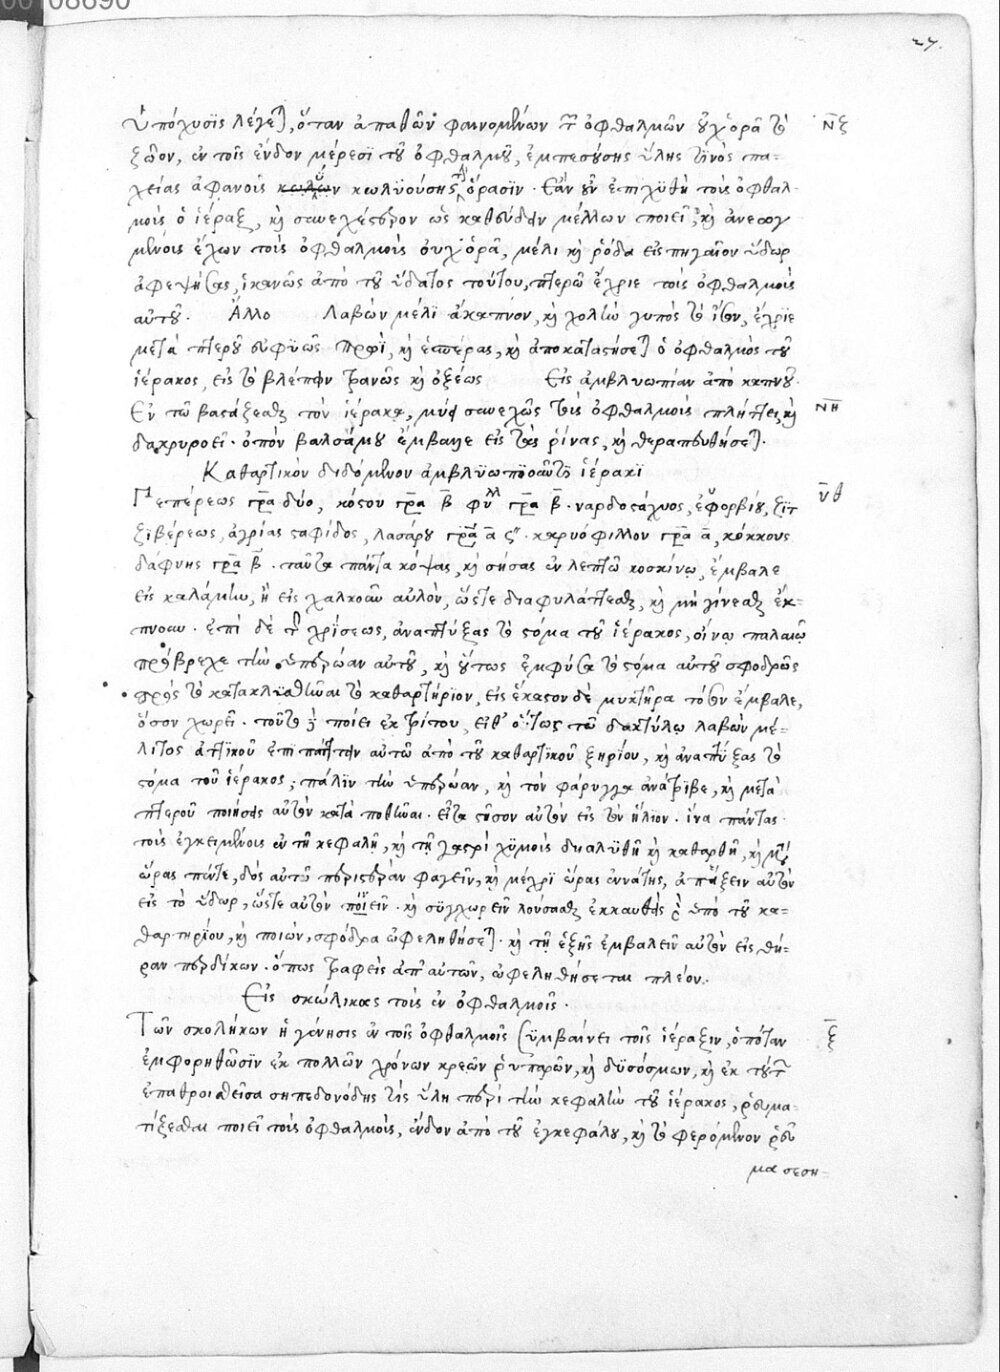 00108690
27.
Ὑπόχυσϊς λέγεται, ὅταν ἀπαθῶν φαινομένων τῶν ὀφθαλμῶν οὐχ ὁρᾶ τὸ νζ
ζῶον, ἐν τοῖς ἔνδον μέρεσϊ τοῦ ὀφθαλμοῦ, ἐμπεσούσης ὕλης τινὸς πα-
χείας ἀφανοῦς κωλϋούσης τὴν ὅρασϊν. Ἐὰν οὖν ἐπιχϋθῆ τοὺς ὀφθαλ-
μοὺς ὁ ἱέραξ, καὶ συνεχέστερον ὡς καθεύδειν μέλλων ποιεῖ, καὶ ἀνεωγ
μένους ἔχων τοὺς ὀφθαλμοὺς οὐχ ὁρᾶ, μέλι καὶ ῥόδα εἰς πηγαῖον ὕδωρ
ἀφεψήσας, ἱκανῶς ἀπὸ τοῦ ὕδατος τούτου, πτερῶ ἔχριε τοὺς ὀφθαλμοὺς
αὐτοῦ. Ἄλλο Λαβὼν μέλϊ ἄκαπνον, καὶ χολὴν γυπὸς τὸ ἴσον, ἔχρϊε
μετὰ πτεροῦ συφϋῶς πρωῒ, καὶ ἑσπέρας, καὶ ἀποκαταστήσεται ὁ ὀφθαλμὸς τοῦ
ἱέρακος, εἰς τὸ βλέπειν τρανῶς καὶ ὀξέως Εἰς ἀμβλυωπίαν ἀπὸ καπνοῦ.
Ἐν τῶ βαστάξεσθαι τὸν ἱέρακα, μύει συνεχῶς τοὺς ὀφθαλμοὺς πλήττει, καὶ νη
δακρυροεῖ. ὀπὸν βαλσάμου ἔμβαλλε εἰς τὰς ῥίνας, καὶ θεραπευθήσεται.
Καθαρτικὸν διδόμενον ἀμβλϋωποῦντϊ ἱέρακϊ
Πεπέρεως γρα δύο, κόστου γρα β φύλλ γρα β. ναρδοστάχυος, ἐφορβίου, ζϊγ νθ
ζϊβέρεως, ἀγρίας σταφίδος, λασάρου γρα α ς". καρυόφιλλον γρα α, κόκκους
δάφνης γρα β. ταῦτα πάντα κόψας, καὶ σήσας ἐν λεπτῶ κοσκίνω, ἔμβαλε
εἰς καλάμην, ἢ εἰς χαλκοῦν αὐλὸν, ὥστε διαφυλάττεσθαι, καὶ μὴ γίνεσθαι ἔκ-
πνουν. ἐπὶ δὲ τῆς χρίσεως, ἀναπτύξας τὸ στόμα τοῦ ἱέρακος, οἴνω παλαιῶ
πρόβρεχε τὴν ὑπερώαν αὐτοῦ, καὶ οὕτως ἐμφύσα τὸ στόμα αὐτοῦ σφοδρῶς
πρὸς τὸ κατακλϋσθῆναι τὸ καθαρτήρϊον, εἰς ἕκαστον δὲ μυκτῆρα τόσον ἔμβαλε,
ὅσον χωρεῖ. τοῦτο δὲ ποίει ἐκ τρίτου, εἶθ' οὕτως τῶ δακτύλω λαβὼν μέ-
λιτος ἀττικοῦ ἐπίπαττε αὐτῶ ἀπὸ τοῦ καθαρτϊκοῦ ξηρίου, καὶ ἀναπτύξας τὸ
στόμα τοῦ ἱέρακος, πάλϊν τὴν ὑπερώαν, καὶ τὸν φάρυγγα ἀνάτριβε, καὶ μετὰ
πτεροῦ ποιήσας αὐτὸν καταποθῆναι. εἶτα στῆσον αὐτὸν εἰς τὸν ἥλϊον. ἵνα πάντας
τοὺς ἐγκειμένους ἐν τῆ κεφαλῆ, καὶ τῆ γαστρὶ χϋμοὺς διαλϋθῆ καὶ καθαρθῆ, καὶ μεθ'
ὥρας πέντε, δὸς αὐτῶ περιστερὰν φαγεῖν, καὶ μέχρϊ ὥρας ἐννάτης, ἀπάξειν αὐτὸν
εἰς τὸ ὕδωρ, ὥστε αὐτὸν πϊεῖν. καὶ σϋγχωρεῖν λούσασθαι ἐκκαυθεὶς γὰρ ὑπὸ τοῦ κα-
θαρτηρίου, καὶ ποιὼν, σφόδρα ὠφεληθήσεται. καὶ τῆ ἑξῆς ἐμβαλεῖν αὐτὸν εἰς θή-
ραν περδίκων. ὅπως τραφεὶς ἀπ' αὐτῶν, ὠφεληθήσεται πλέον.
Εἰς σκώλικας τοὺς ἐν ὀφθαλμοῖς.
Τῶν σκολήκων ἡ γέννησις ἐν τοῖς ὀφθαλμοῖς συμβαίνει τοῖς ἱέραξιν, ὁπόταν ξ
ἐμφορηθῶσϊν ἐκ πολλῶν χρόνων κρεῶν ῥυπαρῶν, καὶ δϋσόσμων, καὶ ἐκ τούτων
ἐπαθροισθεῖσα σηπεδονώδης τὶς ὕλη περὶ τὴν κεφαλὴν τοῦ ἱέρακος, ῥευμα-
τίζεσθαι ποιεῖ τοὺς ὀφθαλμοὺς, ἔνδον ἀπὸ τοῦ ἐγκεφάλου, καὶ τὸ φερόμενον ῥεῦ
μα σεση-